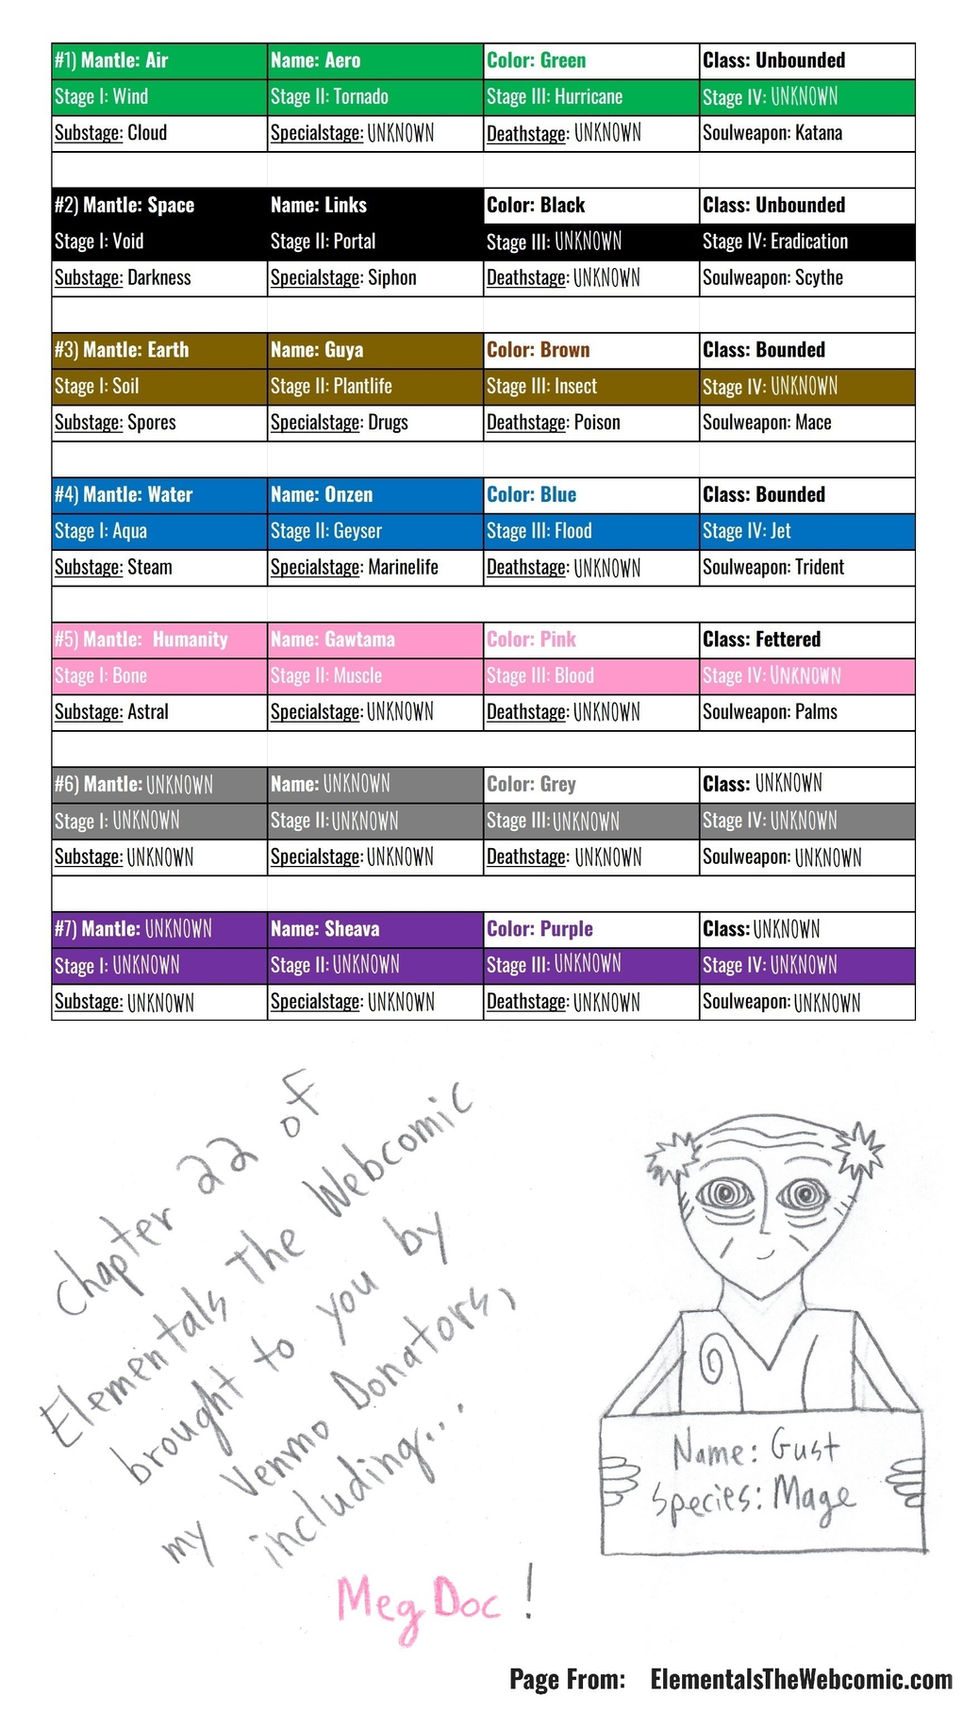 #1) Mantle: Air Name: Aero Color: Green Class: Unbounded
Stage I: Wind Stage II: Tornado Stage III: Hurricane Stage IV: UNKNOWN
Substage: Cloud Specialstage: UNKNOWN Deathstage: UNKNOWN Soulweapon: Katana
#2) Mantle: Space Name: Links Color: Black Class: Unbounded
Stage I: Void Stage II: Portal Stage III: UNKNOWN Stage IV: Eradication
Substage: Darkness Specialstage: Siphon Deathstage: UNKNOWN Soulweapon: Scythe
#3) Mantle: Earth Name: Guya Color: Brown Class: Bounded
Stage I: Soil Stage II: Plantlife Stage III: Insect Stage IV: UNKNOWN
Substage: Spores Specialstage: Drugs Deathstage: Poison Soulweapon: Mace
#4) Mantle: Water Name: Onzen Color: Blue Class: Bounded
Stage I: Aqua Stage II: Geyser Stage III: Flood Stage IV: Jet
Substage: Steam Specialstage: Marinelife Deathstage: UNKNOWN Soulweapon: Trident
#5) Mantle: Humanity Name: Gawtama Color: Pink Class: Fettered
Stage I: Bone Stage II: Muscle Stage III: Blood Stage IV: UNKNOWN
Substage: Astral Specialstage: UNKNOWN Deathstage: UNKNOWN Soulweapon: Palms
#6) Mantle: UNKNOWN Name: UNKNOWN Color: Grey Class: UNKNOWN
Stage I: UNKNOWN Stage II: UNKNOWN Stage III: UNKNOWN Stage IV: UNKNOWN
Substage: UNKNOWN Specialstage: UNKNOWN Deathstage: UNKNOWN Soulweapon: UNKNOWN
#7) Mantle: UNKNOWN Name: Sheava Color: Purple Class: UNKNOWN
Stage I: UNKNOWN Stage II: UNKNOWN Stage III: UNKNOWN Stage IV: UNKNOWN
Substage: UNKNOWN Specialstage: UNKNOWN Deathstage: UNKNOWN Soulweapon: UNKNOWN
Chapter 22 of
Elementals The Webcomic
brought to you by
my Venmo Donators,
including...
Meg Doc!
Name: Gust
Species: Mage
Page From: ElementalsTheWebcomic.com